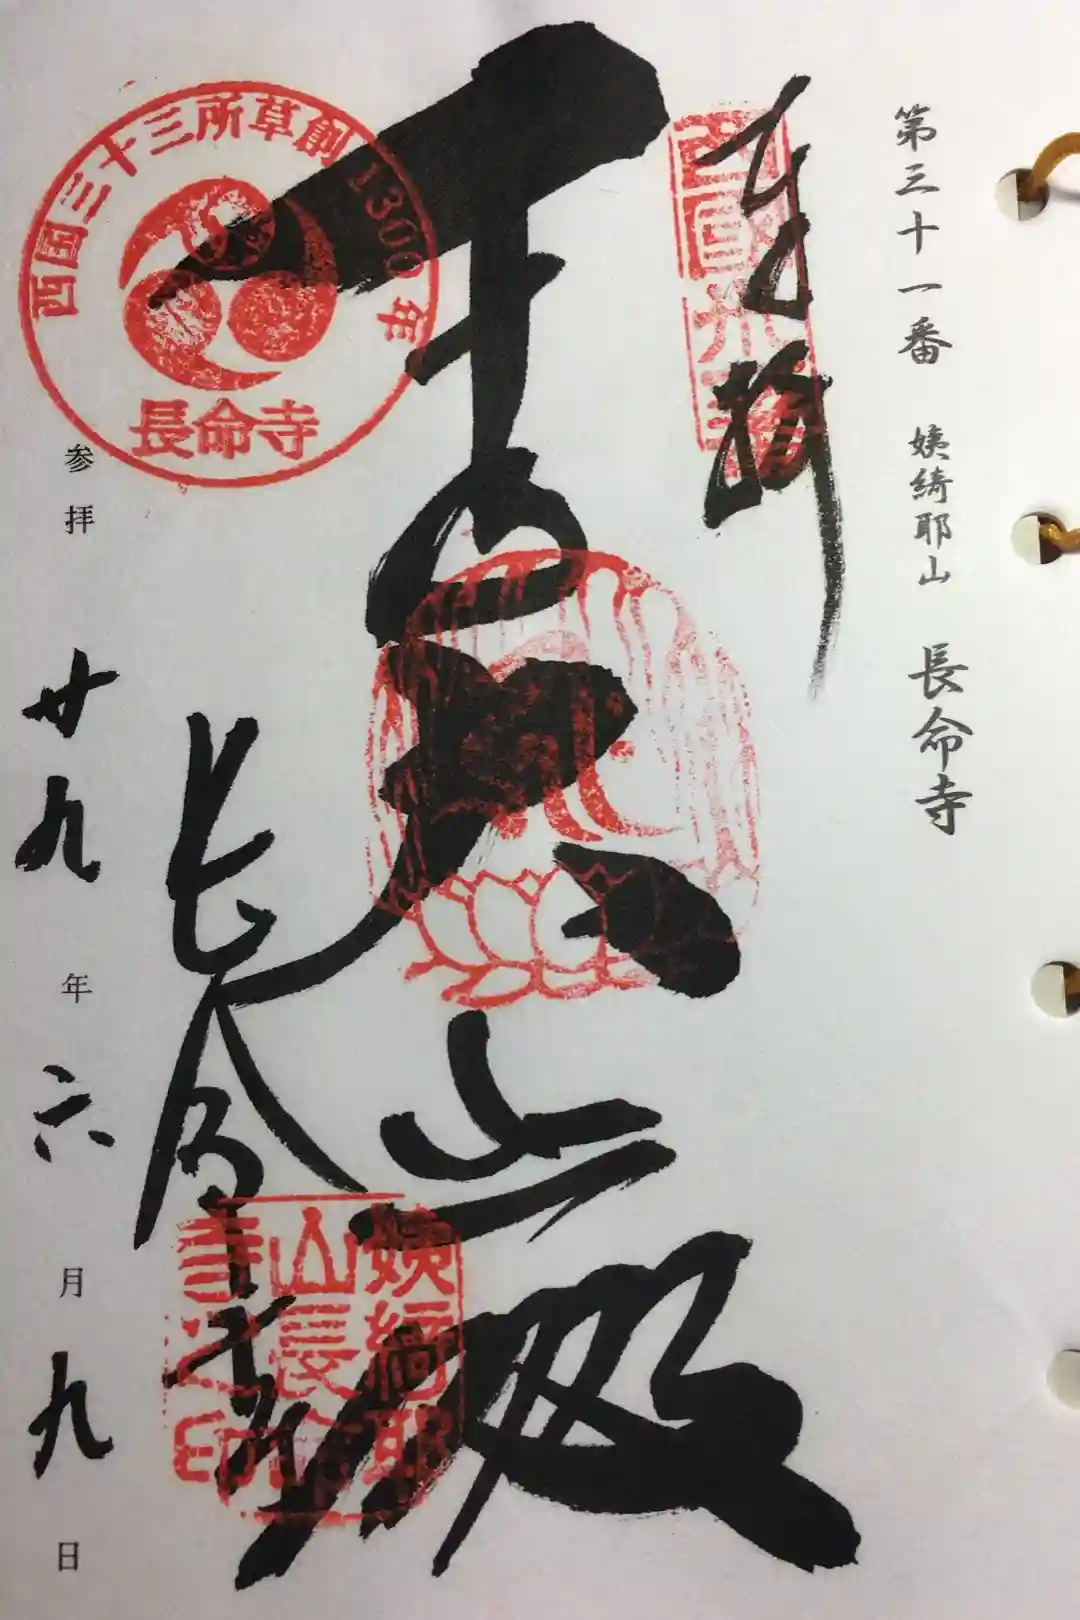 第三十一番 姨綺耶山 長命寺
奉拝
千手大悲殿
西国三十三所草創1300年
長命寺
長命寺
姨綺耶
山長命
寺之印
参拝 廿九年六月九日